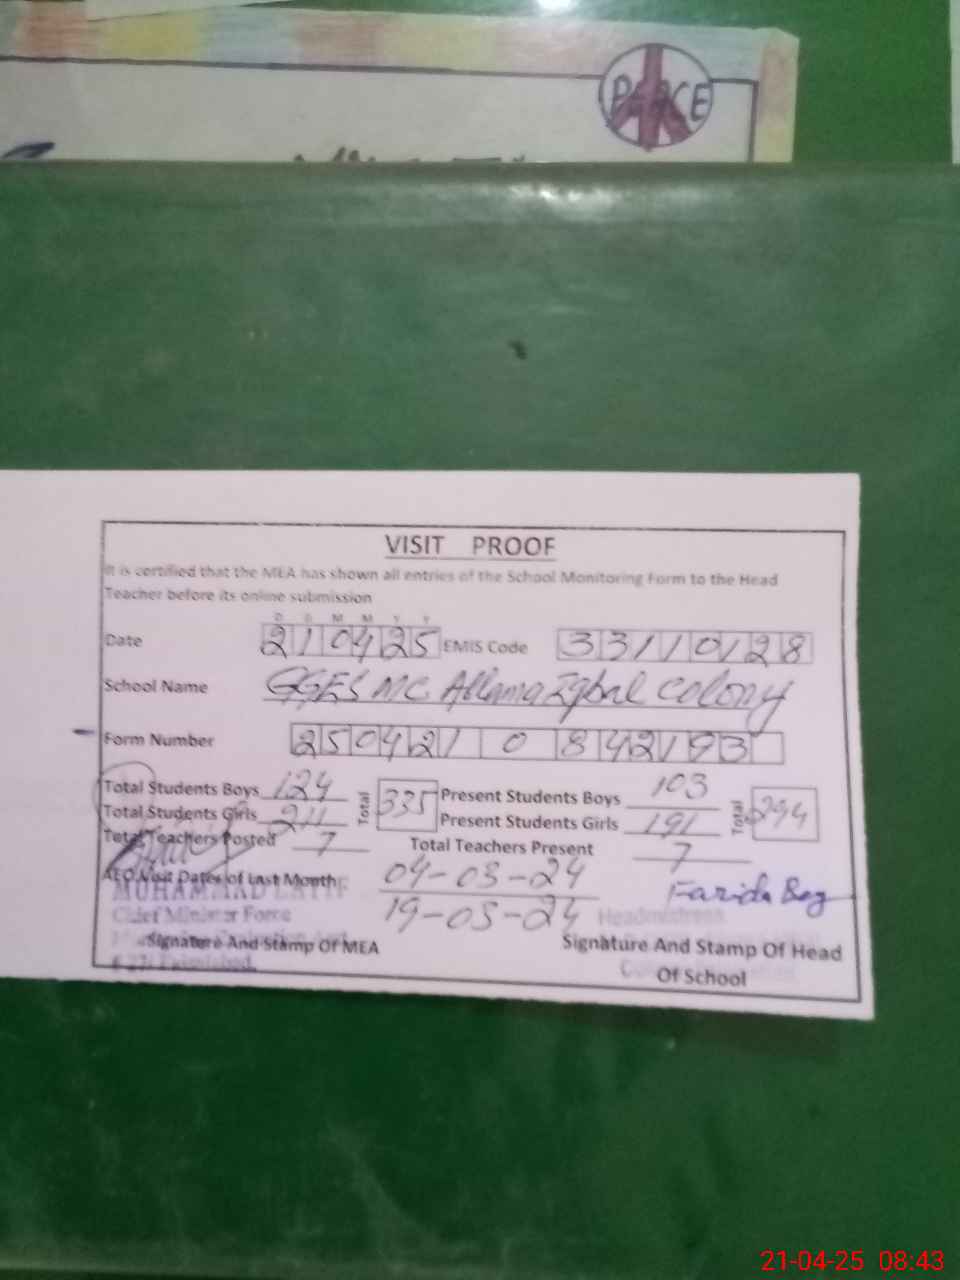 PEACE
VISIT PROOF
It is certified that the MEA has shown all entries of the School Monitoring Form to the Head
Teacher before its online submission
D D M M Y Y
Date 210425 EMIS Code 33110128
School Name GGES MC Allama Iqbal Colony
Form Number 250421 0 842193
Total Students Boys 124 Total 335 Present Students Boys 103 Total 294
Total Students Girls 211 Present Students Girls 191
Total Teachers Posted 7 Total Teachers Present 7
AEO Visit Dates of Last Month 04-03-24
19-03-24
MUHAMMAD LATIF
Farida Beg
Chief Minister Force
Headmistress
Signature And Stamp Of MEA
Signature And Stamp Of Head
Of School
21-04-25 08:43